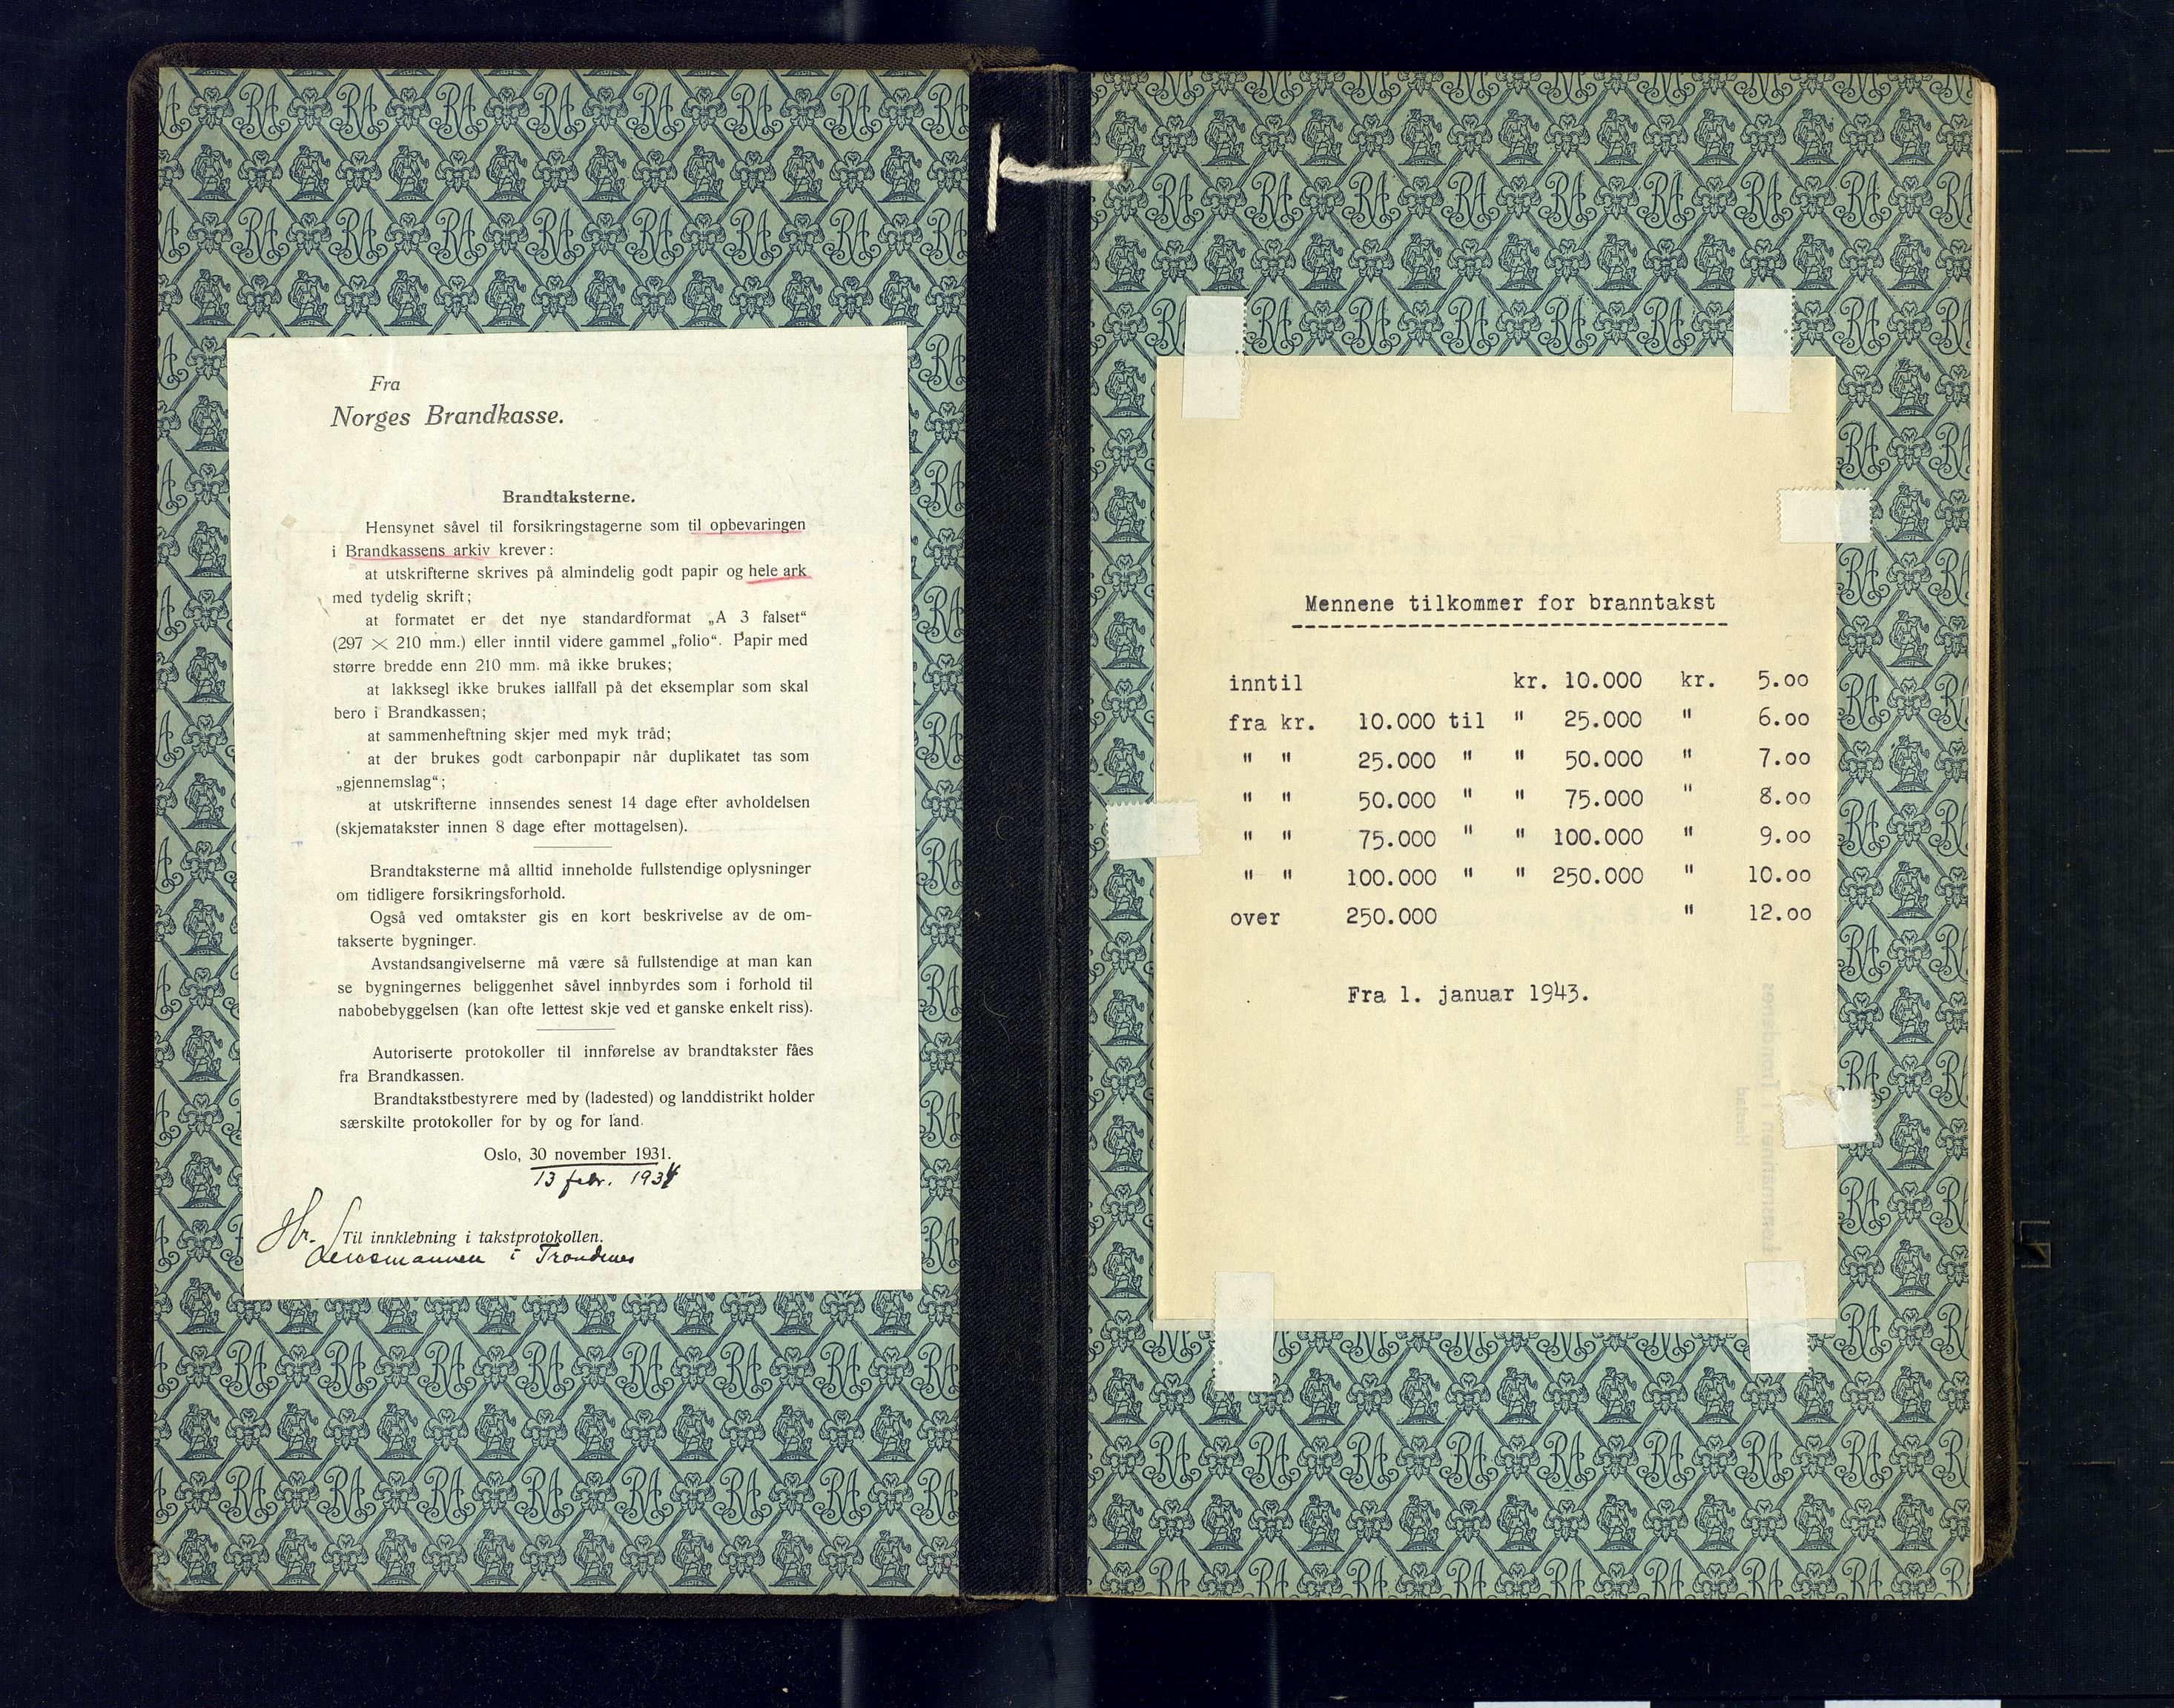 Fra
Norges Brandkasse.
Brandtaksterne.
Hensynet såvel til forsikringstagerne som til opbevaringen
i Brandkassens arkiv krever:
at utskrifterne skrives på almindelig godt papir og hele ark
med tydelig skrift;
at formatet er det nye standardformat „A 3 falset“
(297 × 210 mm.) eller inntil videre gammel „folio“. Papir med
større bredde enn 210 mm. må ikke brukes;
at lakksegl ikke brukes iallfall på det eksemplar som skal
bero i Brandkassen;
at sammenheftning skjer med myk tråd;
at der brukes godt carbonpapir når duplikatet tas som
„gjennemslag“;
at utskrifterne innsendes senest 14 dage efter avholdelsen
(skjematakster innen 8 dage efter mottagelsen).
Brandtaksterne må alltid inneholde fullstendige oplysninger
om tidligere forsikringsforhold.
Også ved omtakster gis en kort beskrivelse av de om-
takserte bygninger.
Avstandsangivelserne må være så fullstendige at man kan
se bygningernes beliggenhet såvel innbyrdes som i forhold til
nabobebyggelsen (kan ofte lettest skje ved et ganske enkelt riss).
Autoriserte protokoller til innførelse av brandtakster fåes
fra Brandkassen.
Brandtakstbestyrere med by (ladested) og landdistrikt holder
særskilte protokoller for by og for land.
Oslo, 30 november 1931.
13 febr. 1934
Hr.
Til innklebning i takstprotokollen.
Lensmannen i Trondenes
Mennene tilkommer for branntakst
inntil kr. 10.000 kr. 5.00
fra kr. 10.000 til " 25.000 " 6.00
" " 25.000 " " 50.000 " 7.00
" " 50.000 " " 75.000 " 8.00
" " 75.000 " " 100.000 " 9.00
" " 100.000 " " 250.000 " 10.00
over 250.000 " 12.00
Fra 1. januar 1943.
Lensmannen i Trondenes
Harstad